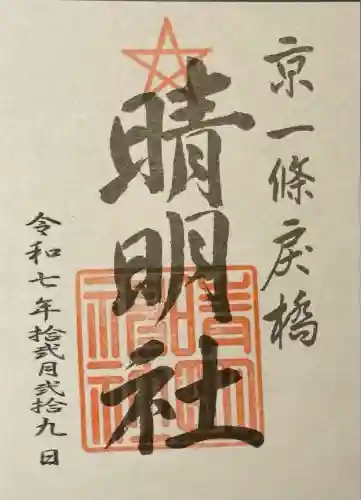 京一條戻橋
晴明社
晴明神社
令和七年拾弐月弐拾九日